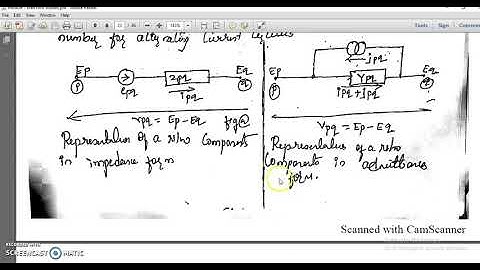 number for alternating current circuits
Ep
epq
Zpq
ipq
Eq
p
q
vpq = Ep - Eq
fig a
Representation of a n/w Components
in impedance form
jpq
Ep
Ypq
Eq
p
q
ipq + jpq
Vpq = Ep - Eq
Representation of a n/w
Components in admittance
form.
Scanned with CamScanner
RECORDED WITH
SCREENCAST MATIC